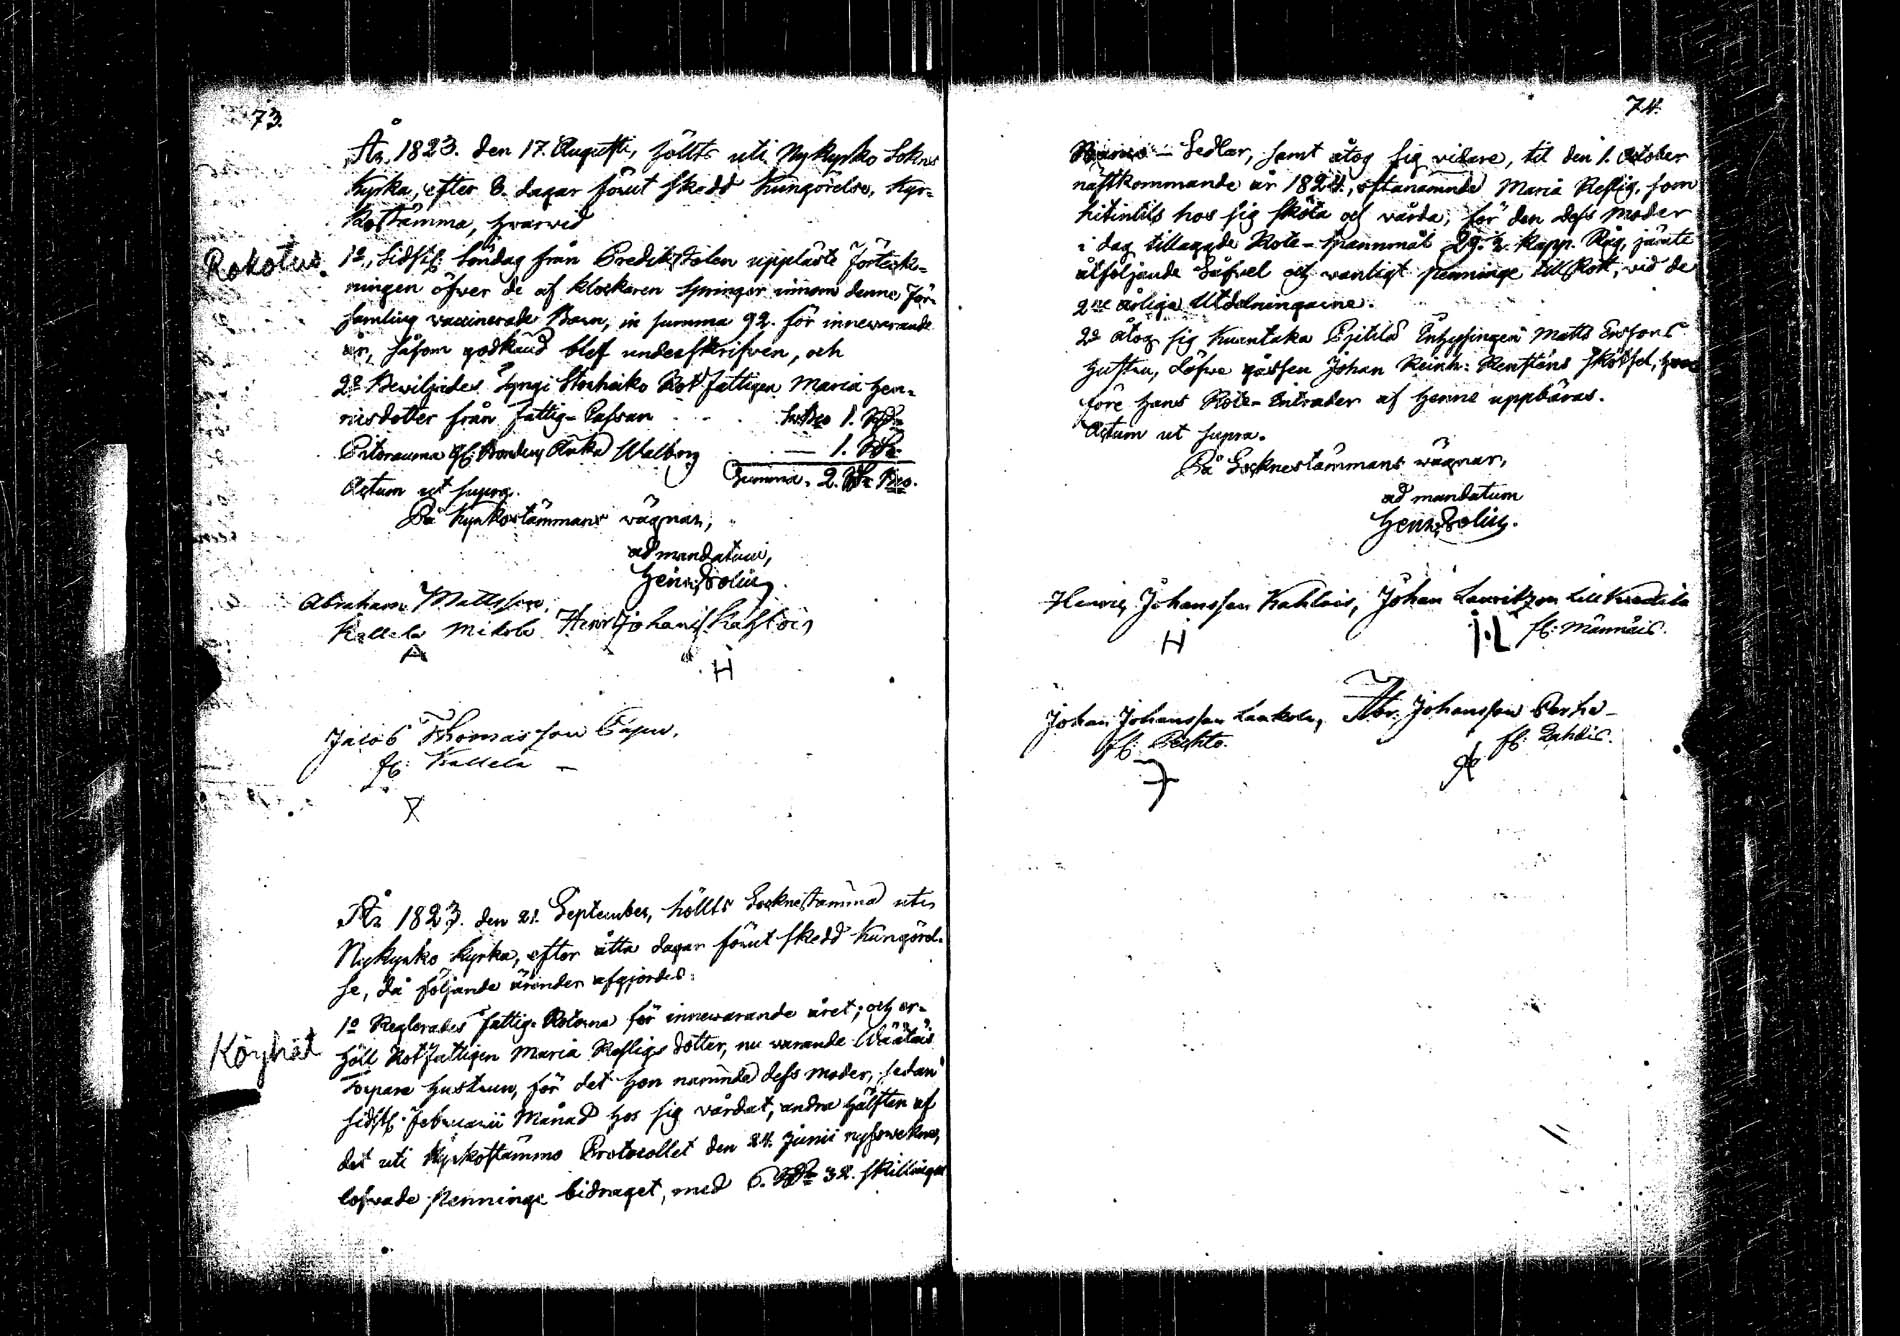 73.
År 1823. den 17. Augusti, hölts uti Nykyrko Sokns
Kyrka, efter 8. dagar förut skedd kungörelse, Kyr-
kostämma, hvarvid
Rokotus.
1o, Sidstl. Söndag från Predikstolen uppläste Förteck-
ningen öfver de af klockaren Springer innom denne För-
samling vaccinerade Barn, in summa 92. för innevarande
år, såsom godkänd blef underskrifven, och
2o Beviljades Syngi Storheiko Rotfattigen Maria Hen-
ricsdotter från Fattig-Cassan 1. Rdr
Pitorauma Bondens Enka Walborg — 1. Rdr
Summa. 2. Rdr Bco.
Actum ut supra.
På Kyrkostämmans vägnar,
ad mandatum,
Henr:
Abraham Mattsson,
Kallela Mikola Henr Johans Kahlois
A
H
Jacob Thomasson
fl: Kallela —
År 1823. den 21. September, hölts Socknestämma uti
Nykyrko Kyrka, efter åtta dagar förut skedd kungörel-
se, då följande ärender afgjordes:
Köyhät
1o Reglerades Fattig-Roterna för innevarande året; och er-
höll Rotfattigen Maria dotter, nu varande
Torpare hustrun, för det hon nämnde dess moder, sedan
sidstl. Februarii Månad hos sig vårdat, andra hälften af
det uti Kyrkostämmo Protocollet den 24. Junii
lofvade penninge bidraget, med 6. Rdr 32. skillingar
74.
— Sedlar, samt åtog sig vidare, til den 1. October
nästkommande år 1824, oftanämnde Maria som
hitintils hos sig sköta och vårda, för den dess moder
i dag tillagde Rote-Spannmål 29. ½ Kapp. Råg, jämte
åtföljande Såfvel och vanligt penninge tillskott, vid de
2ne årliga Utdelningarne.
2o åtog sig Kuantaka Inhysingen Matts
hustru, gossen Johan Reinh: skötsel, hvar-
före hans Rote-Intrader af henne uppbäras.
Actum ut supra.
På Socknestämmans vägnar,
ad mandatum
Henr:
Henric Johansson Kahlois, Johan Lauritzon
H
I·L fl: Männäis.
Johan Johansson Abr: Johansson
fl:
fl: